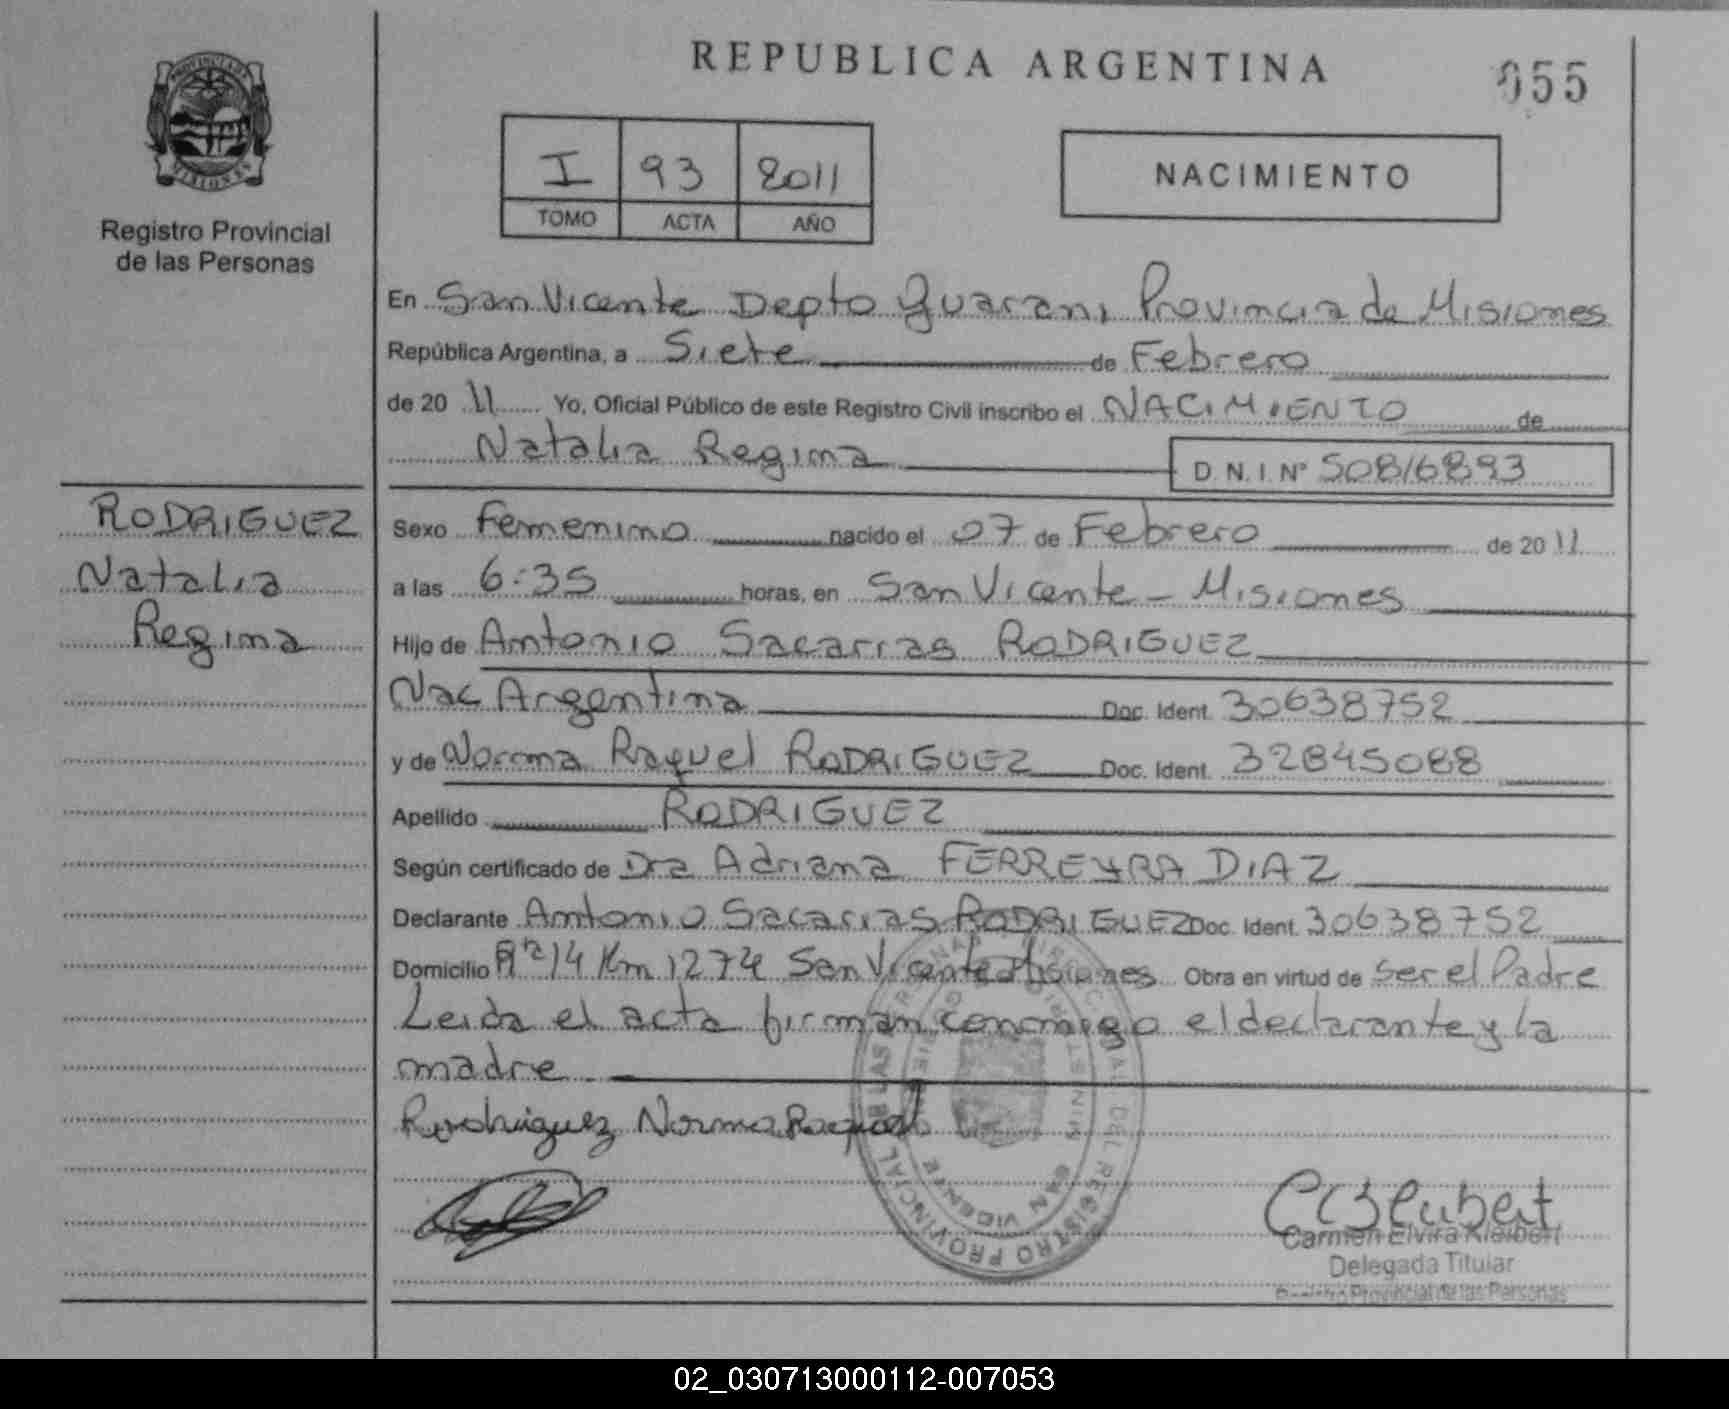 REPUBLICA ARGENTINA
055
PROVINCIA DE
MISIONES
Registro Provincial
de las Personas
I 93 2011
TOMO ACTA AÑO
NACIMIENTO
En San Vicente Depto Guarani Provincia de Misiones
República Argentina, a Siete de Febrero
de 20 11 Yo, Oficial Público de este Registro Civil inscribo el NACIMIENTO de
Natalia Regina D.N.I. Nº 50816893
RODRIGUEZ
Natalia
Regina
Sexo Femenino nacido el 07 de Febrero de 20 11
a las 6:35 horas, en San Vicente - Misiones
Hijo de Antonio Sacarias RODRIGUEZ
Nac Argentina Doc. Ident. 30638752
y de Norma Raquel RODRIGUEZ Doc. Ident. 32845088
Apellido RODRIGUEZ
Según certificado de Dra Adriana FERREYRA DIAZ
Declarante Antonio Sacarias RODRIGUEZ Doc. Ident. 30638752
Domicilio 14 Km 1274 San Vicente Misiones Obra en virtud de ser el Padre
Leida el acta firman conmigo el declarante y la
madre
Rodriguez Norma Raquel
Carmen Elvira Kleibert
Delegada Titular
Registro Provincial de las Personas
PROVINCIAL DEL REGISTRO PROVINCIAL DE LAS
SAN VICENTE
02_030713000112-007053